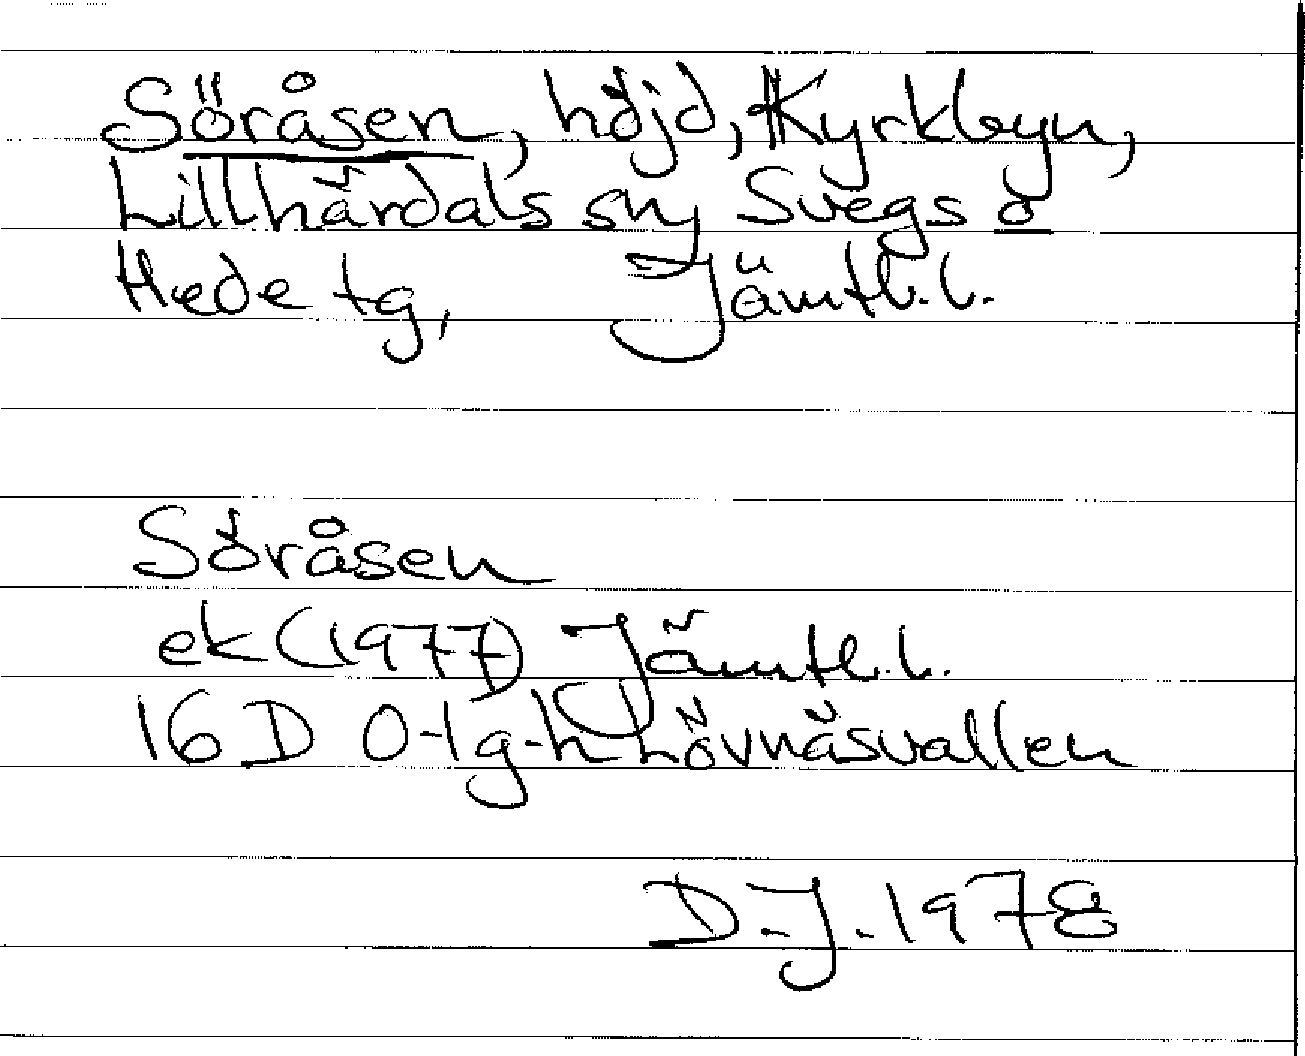 Söråsen, höjd, Kyrkbyn,
Lillhärdals sn, Svegs o
Hede tg, Jämtl. l.
Söråsen
ek (1977) Jämtl. l.
16 D 0-1 g-h Lövnäsvallen
D. J. 1978